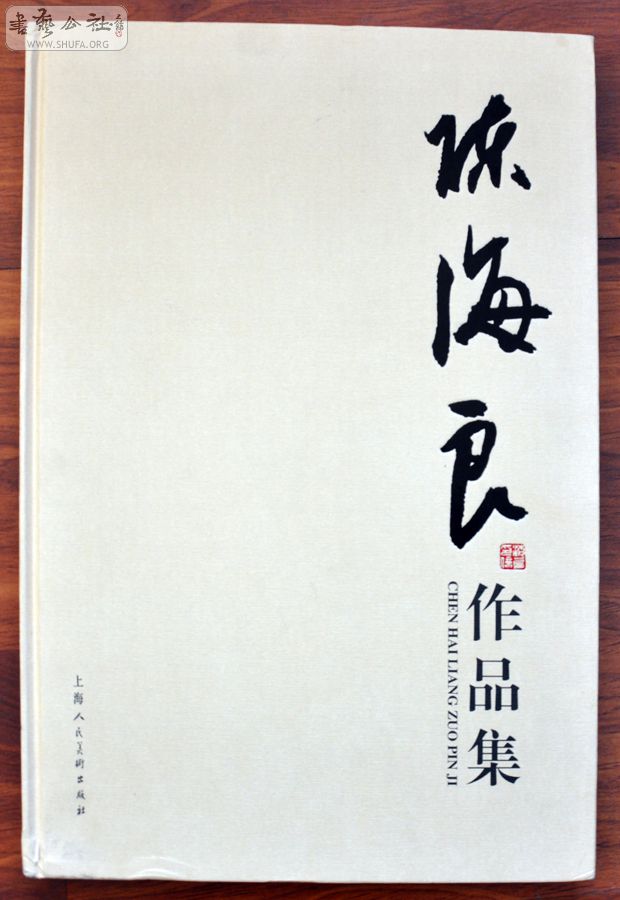 書藝公社
WWW.SHUFA.ORG
陈海良
作品集
CHEN HAI LIANG ZUO PIN JI
上海人民美術出版社